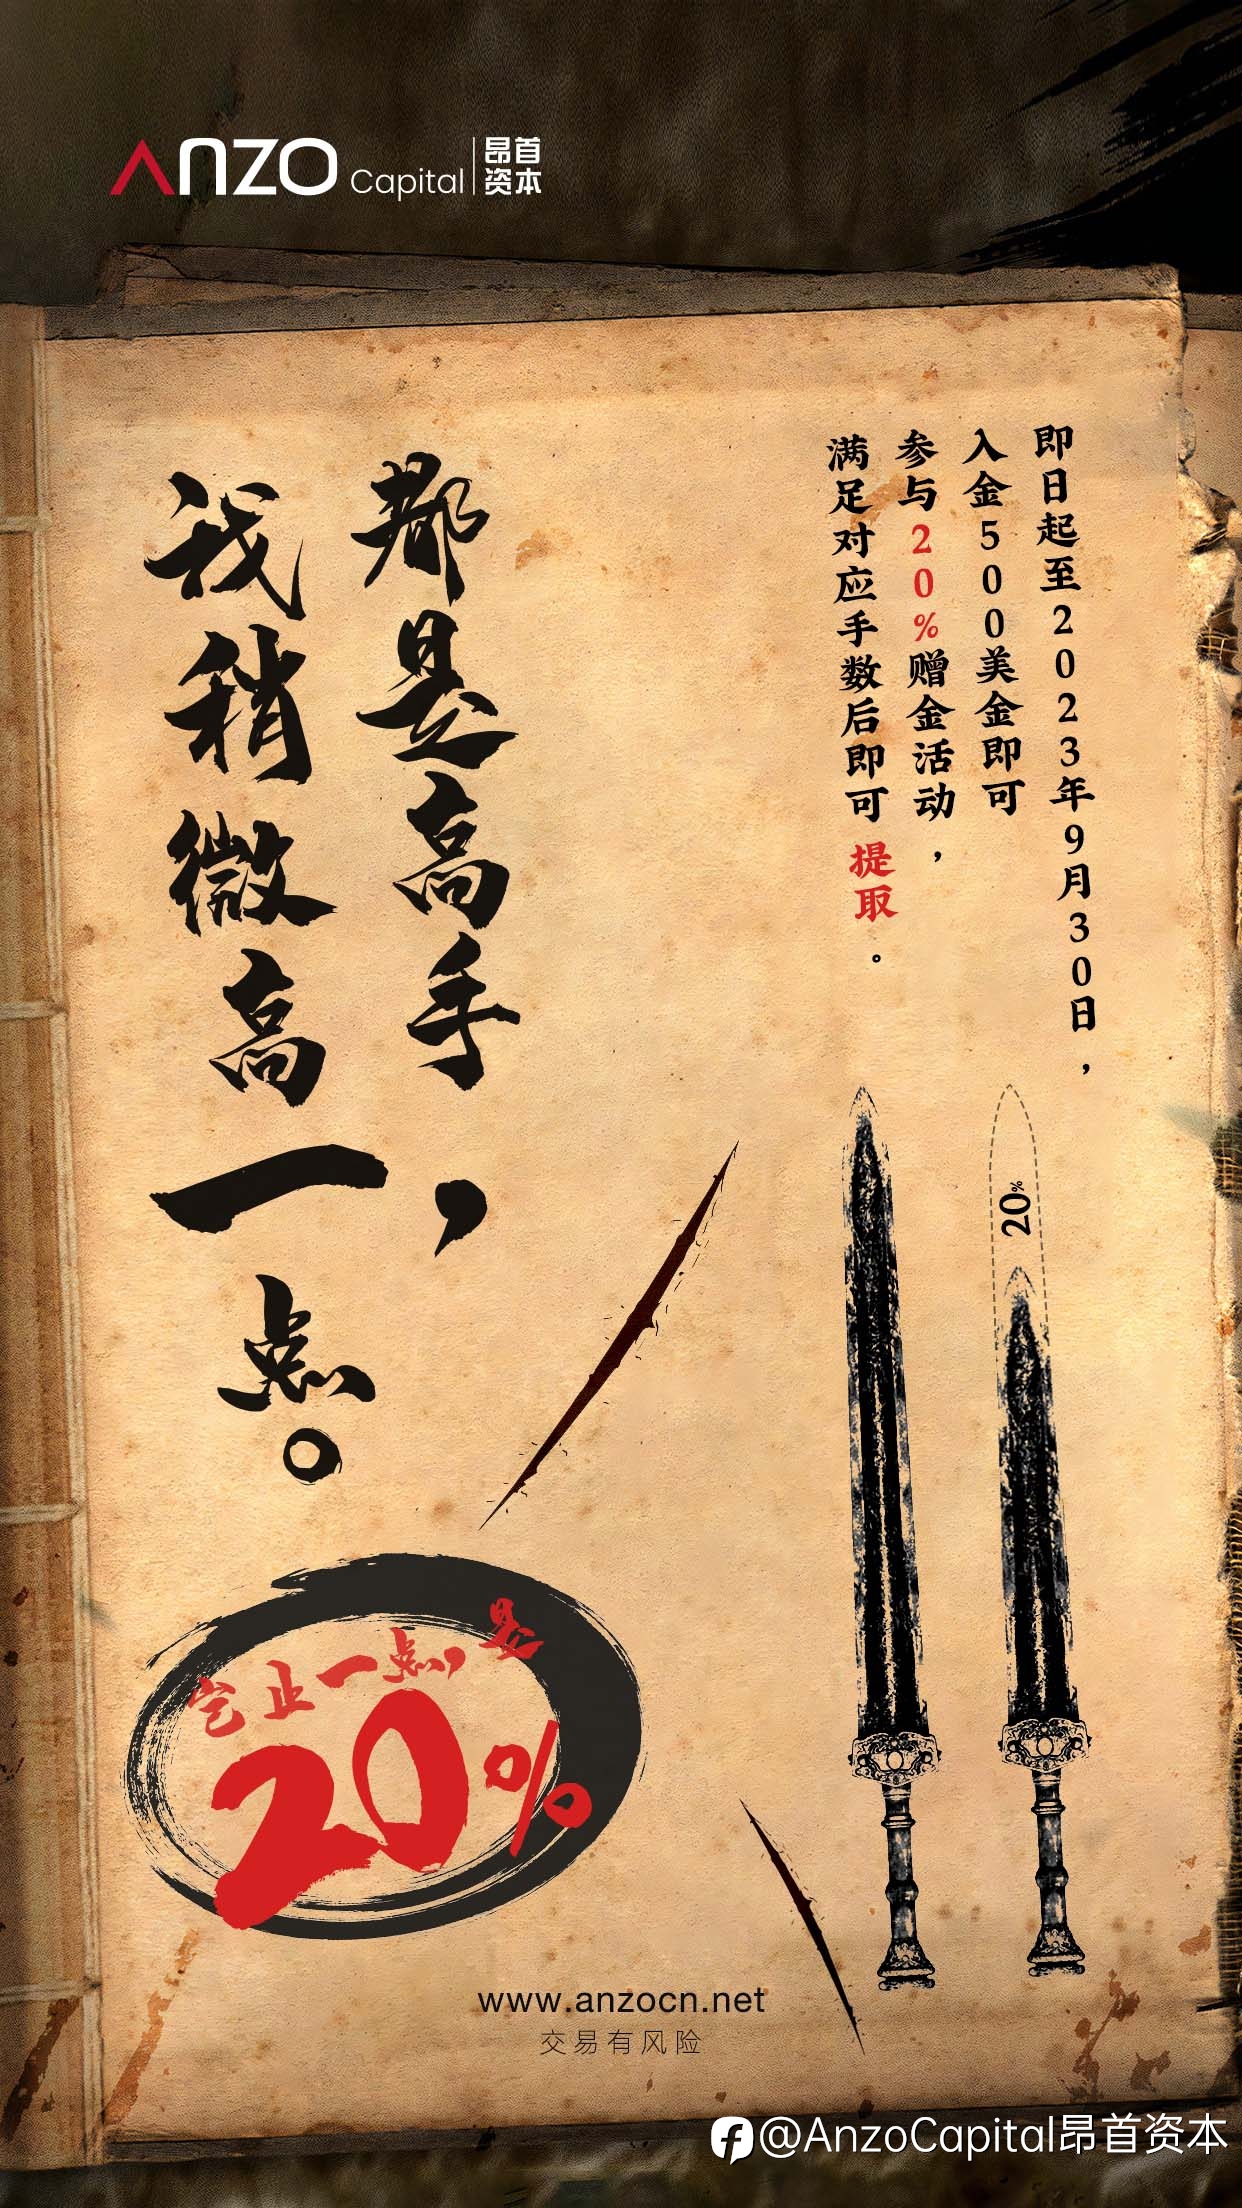 ANZO Capital 昂首资本
即日起至2023年9月30日，
入金500美金即可
参与20%赠金活动，
满足对应手数后即可提取。
都是高手，
我稍微高一点。
岂止一点，是
20%
20%
www.anzocn.net
交易有风险
@AnzoCapital昂首资本